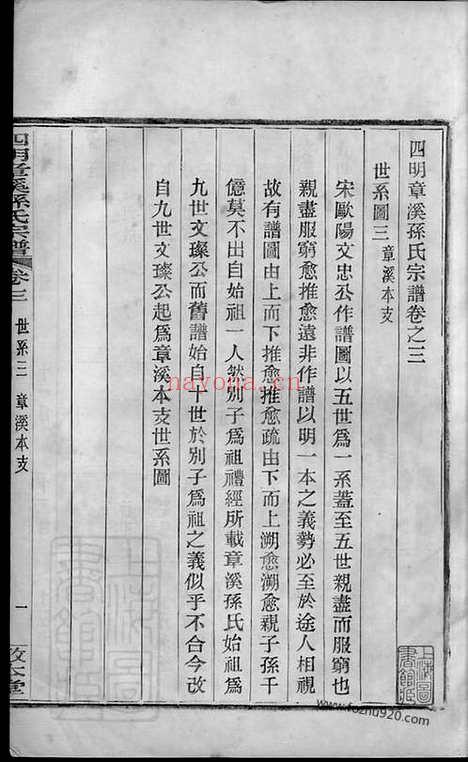 四明章溪孫氏宗譜卷之三
世系圖三 章溪本支
宋歐陽文忠公作譜圖以五世爲一系蓋至五世親盡而服窮也
親盡服窮愈推愈遠非作譜以明一本之義勢必至於途人相視
故有譜圖由上而下推愈推愈疏由下而上溯愈溯愈親子孫千
億莫不出自始祖一人然別子爲祖禮經所載章溪孫氏始祖爲
九世文璨公而舊譜始自十世於別子爲祖之義似乎不合今改
自九世文璨公起爲章溪本支世系圖
四明章溪孫氏宗譜
卷三
世系三 章溪本支
一
上海圖書館藏
nayona.cn
www.fozhu920.com